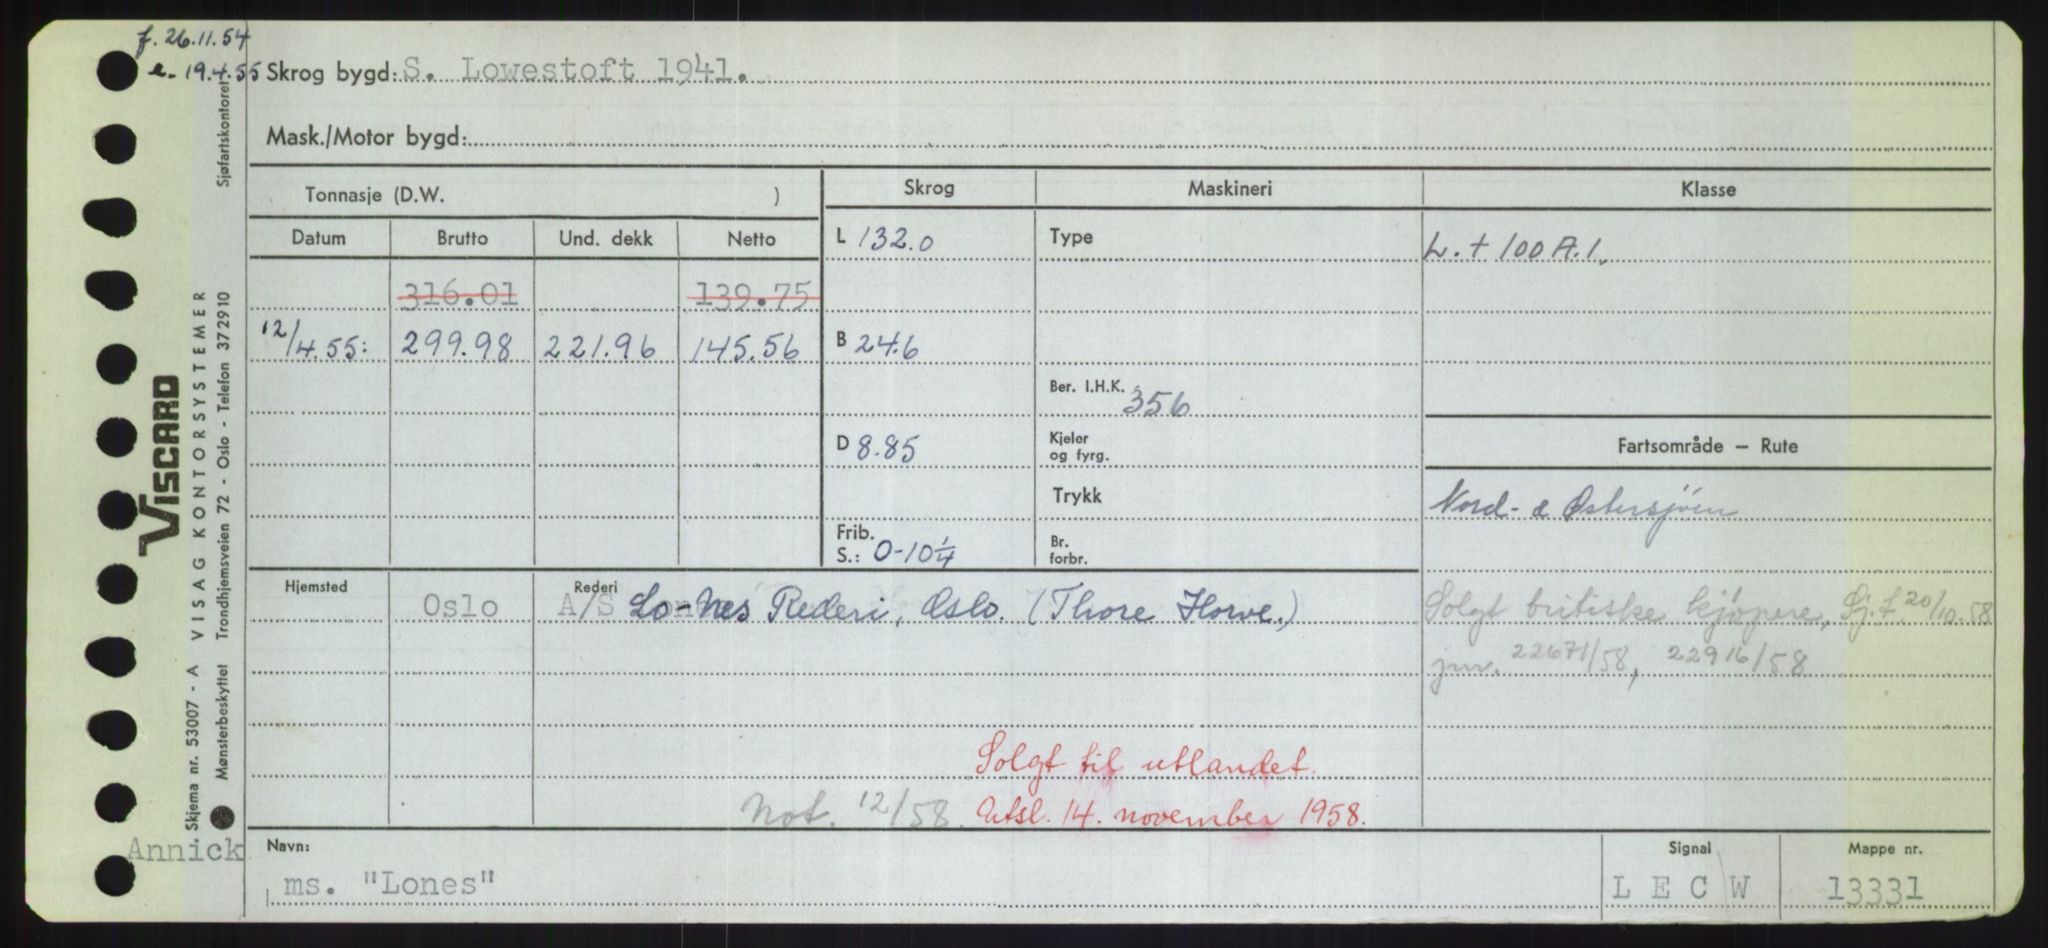 f. 26.11.54
e. 19.4.55 Skrog bygd: S. Lowestoft 1941.
Mask./Motor bygd:
Tonnasje (D.W. ) Skrog Maskineri Klasse
Datum Brutto Und. dekk Netto L 132.0 Type L. + 100 A.1.
316.01 139.75
12/4 55: 299.98 221.96 145.56 B 24.6
Ber. I.H.K. 356
D 8.85 Kjeler og fyrg. Fartsområde — Rute
Trykk Nord- & Østersjøen
Frib. S.: 0-10 1/4 Br. forbr.
Hjemsted Oslo Rederi A/S Lo-Nes Rederi, Oslo. (Thore Horve.) Solgt britiske kjøpere, Sj.f. 20/10.58
jnr. 22671/58, 22916/58
Solgt til utlandet.
Not. 12/58. Utsl. 14. november 1958.
Annick Navn: Signal Mappe nr.
ms. "Lones" L E C W 13331
VISCARD
Skjema nr. 53007 - A VISAG KONTORSYSTEMER
Mønsterbeskyttet Trondhjemsveien 72 - Oslo - Telefon 372910 Sjøfartskontoret